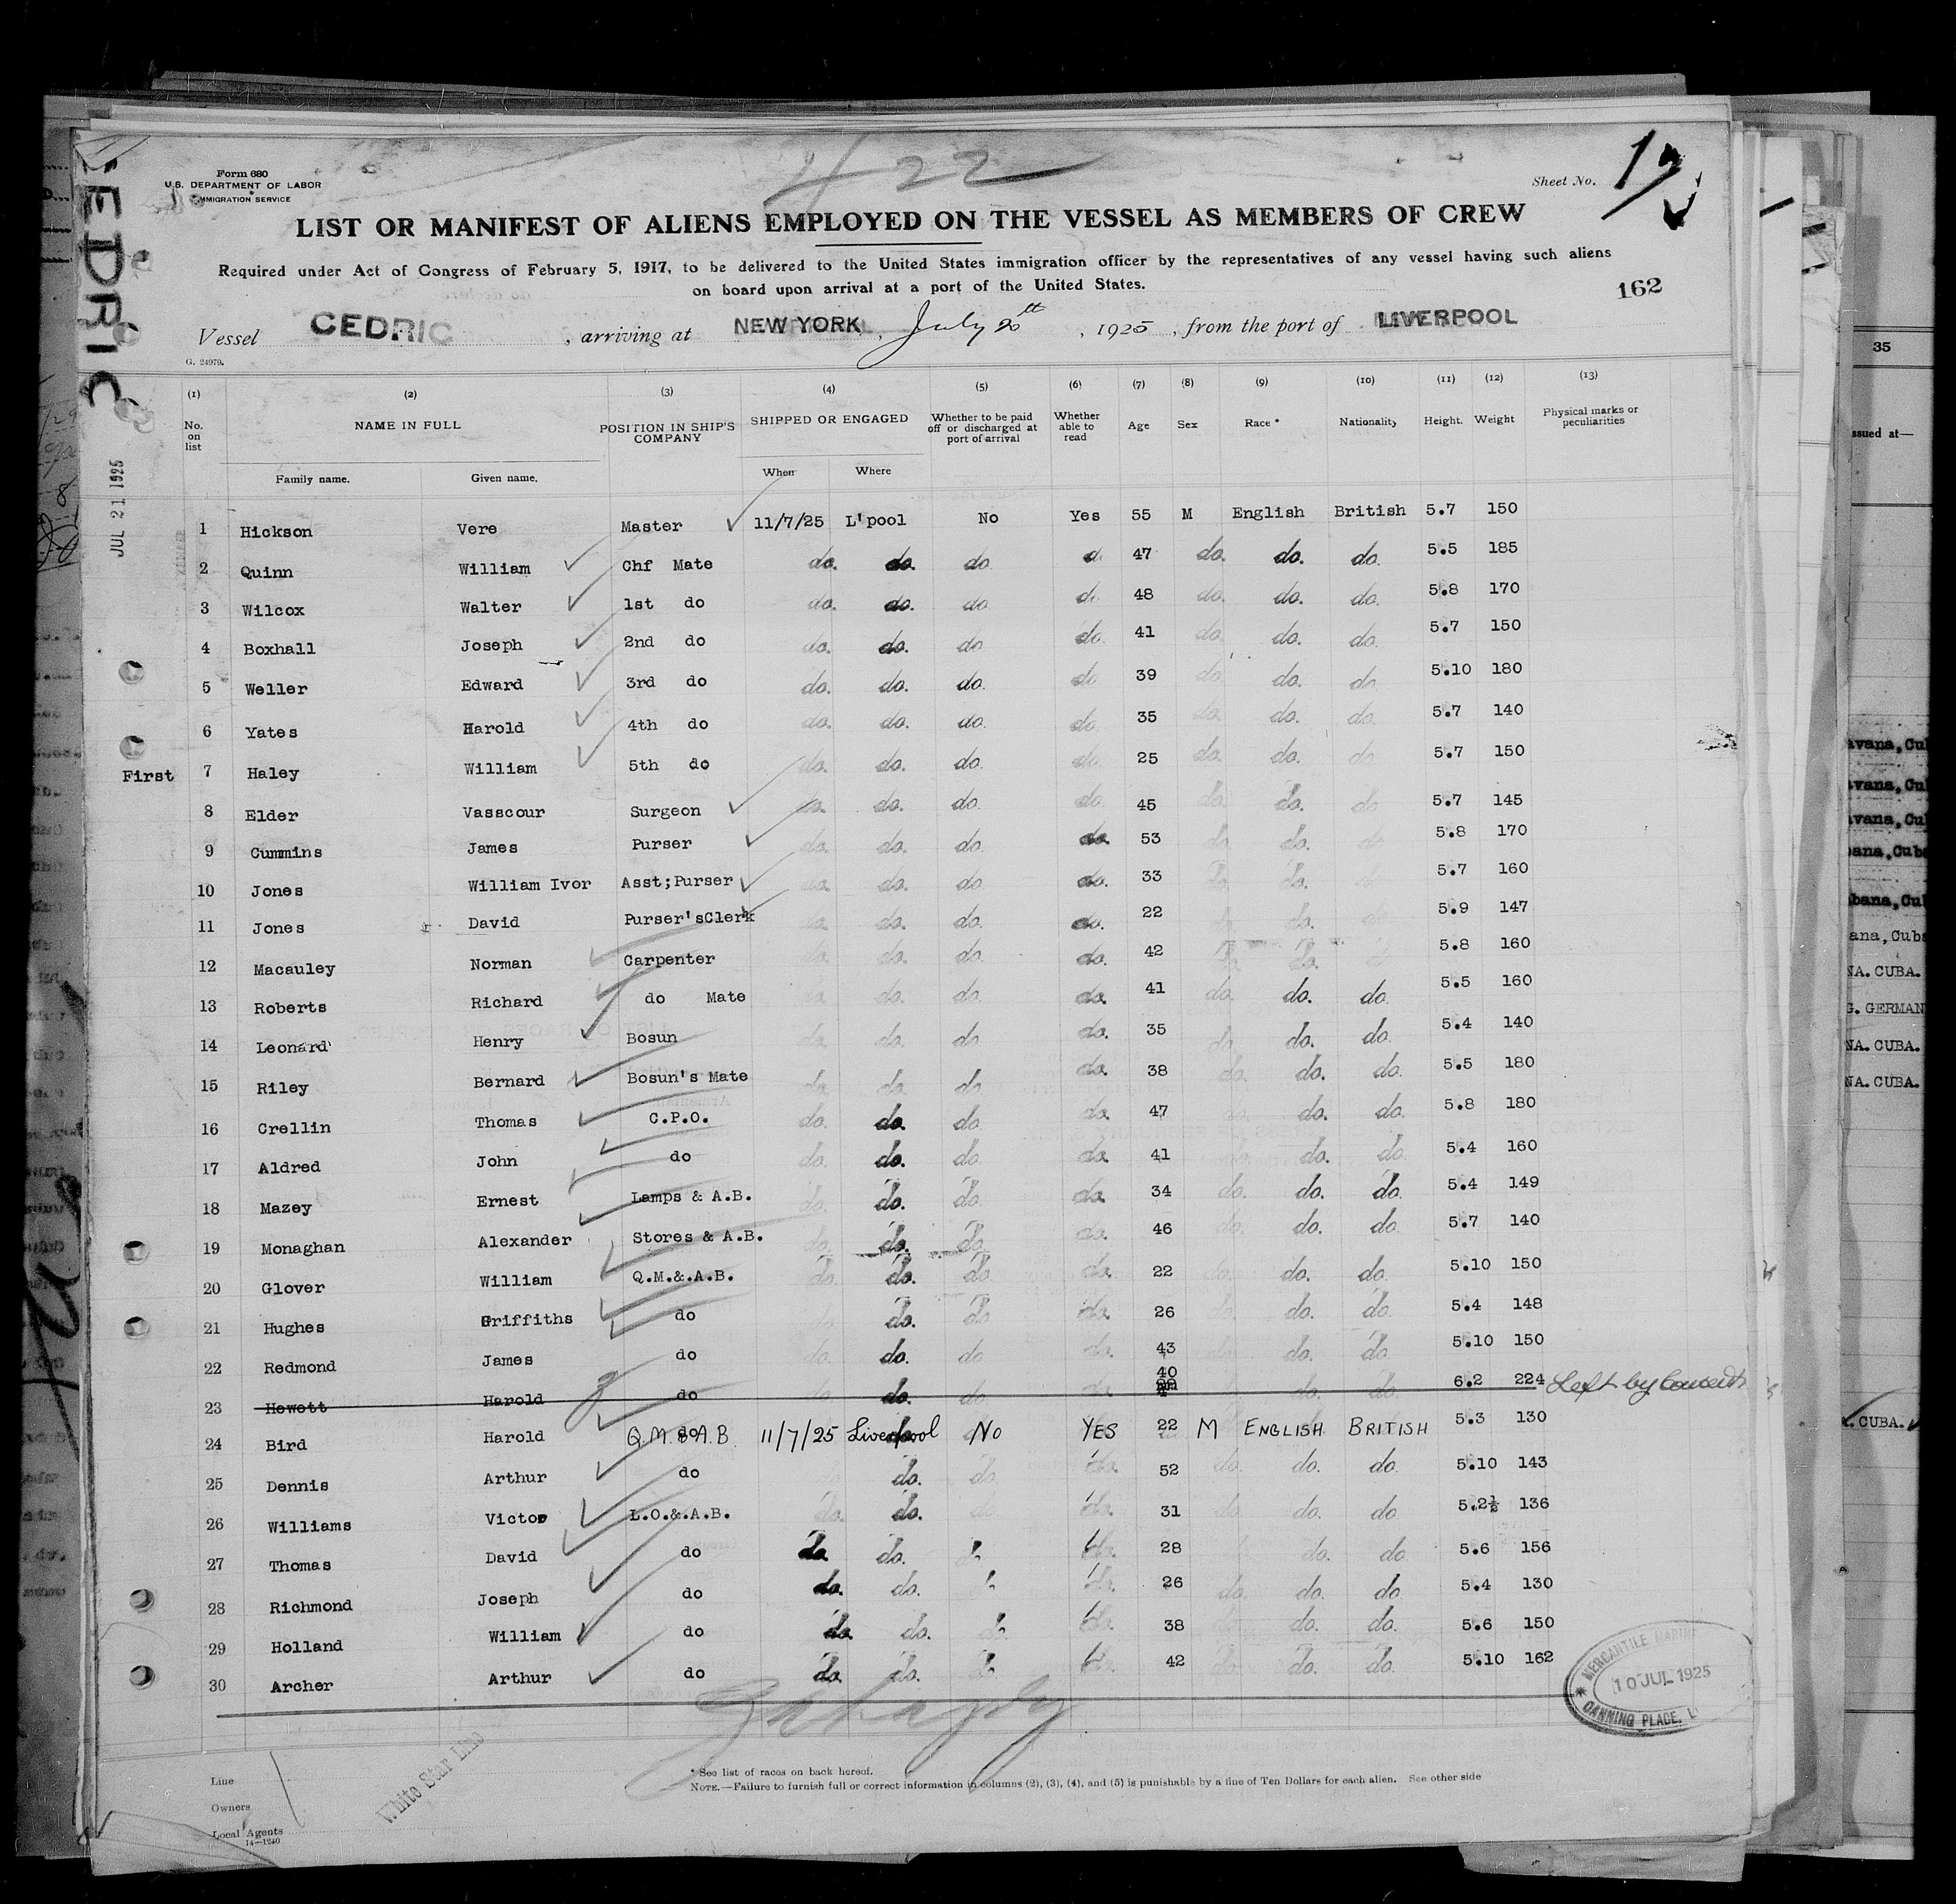 1/22
Form 680
U.S. DEPARTMENT OF LABOR
IMMIGRATION SERVICE
Sheet No. 1
LIST OR MANIFEST OF ALIENS EMPLOYED ON THE VESSEL AS MEMBERS OF CREW
Required under Act of Congress of February 5, 1917, to be delivered to the United States immigration officer by the representatives of any vessel having such aliens
on board upon arrival at a port of the United States.
162
Vessel CEDRIC, arriving at NEW YORK, July 20th, 1925, from the port of LIVERPOOL
G. 24979.
CEDRIC
JUL 21 1925
(1) (2) (3) (4) (5) (6) (7) (8) (9) (10) (11) (12) (13)
No. on list NAME IN FULL POSITION IN SHIP'S COMPANY SHIPPED OR ENGAGED Whether to be paid off or discharged at port of arrival Whether able to read Age Sex Race * Nationality Height. Weight Physical marks or peculiarities
Family name. Given name. When Where
1 Hickson Vere Master 11/7/25 L'pool No Yes 55 M English British 5.7 150
2 Quinn William Chf Mate do. do. do d. 47 do. do. do. 5.5 185
3 Wilcox Walter 1st do do. do. do d. 48 do. do. do. 5.8 170
4 Boxhall Joseph 2nd do do. do. do do. 41 do. do. do. 5.7 150
5 Weller Edward 3rd do do. do. do. do 39 do. do. do. 5.10 180
6 Yates Harold 4th do do. do. do. do 35 do. do. do. 5.7 140
First 7 Haley William 5th do do. do. do. do 25 do. do. do 5.7 150
8 Elder Vasscour Surgeon do. do. do. do 45 do. do. do 5.7 145
9 Cummins James Purser do. do. do. do. 53 do. do. do 5.8 170
10 Jones William Ivor Asst;Purser do. do. do. do. 33 do. do. 5.7 160
11 Jones David Purser'sClerk do. do. do. do. 22 do. do. 5.9 147
12 Macauley Norman Carpenter do. do. do. do. 42 do. do. 5.8 160
13 Roberts Richard do Mate do. do. do. 41 do. do. do. 5.5 160
14 Leonard Henry Bosun do. do. do do. 35 do. do. do. 5.4 140
15 Riley Bernard Bosun's Mate do. do. do. do. 38 do. do. do. 5.5 180
16 Crellin Thomas C.P.O. do. do. do. do. 47 do. do. 5.8 180
17 Aldred John do do. do. do. do. 41 do. do. 5.4 160
18 Mazey Ernest Lamps & A.B. do. do. do. do. 34 do. do. do. 5.4 149
19 Monaghan Alexander Stores & A.B. do. do. do. do. 46 do. do. 5.7 140
20 Glover William Q.M.&.A.B. do. do. do. do. 22 do. do. 5.10 150
21 Hughes Griffiths do do. do. do. 26 do. do. 5.4 148
22 Redmond James do do. do. do do. 43 do. do. 5.10 150
23 Hewett Harold do do. do. do. 40 do. do. 6.2 224 Left by
24 Bird Harold Q.M.&A.B 11/7/25 Liverpool No YES 22 M ENGLISH BRITISH 5.3 130
25 Dennis Arthur do do. do do. 52 do. do. do. 5.10 143
26 Williams Victor L.O.&.A.B. do. do. do do. 31 do. do. do 5.2½ 136
27 Thomas David do do. do. do. 28 do. do. 5.6 156
28 Richmond Joseph do do. do. do. 26 do. do. do. 5.4 130
29 Holland William do do. do. do. do. 38 do. do. 5.6 150
30 Archer Arthur do do. do. do. 42 do. do. do. 5.10 162
MERCANTILE MARINE
10 JUL 1925
CANNING PLACE, L
Line White Star Line
Owners
Local Agents
14—1240
* See list of races on back hereof.
NOTE.—Failure to furnish full or correct information in columns (2), (3), (4), and (5) is punishable by a fine of Ten Dollars for each alien. See other side
35
ssued at—
avana,Cu
avana,Cu
avana,Cu
bana,Cub
bana,Cu
ana,Cuba
NA. CUBA.
G. GERMAN
NA. CUBA.
NA. CUBA.
. CUBA.